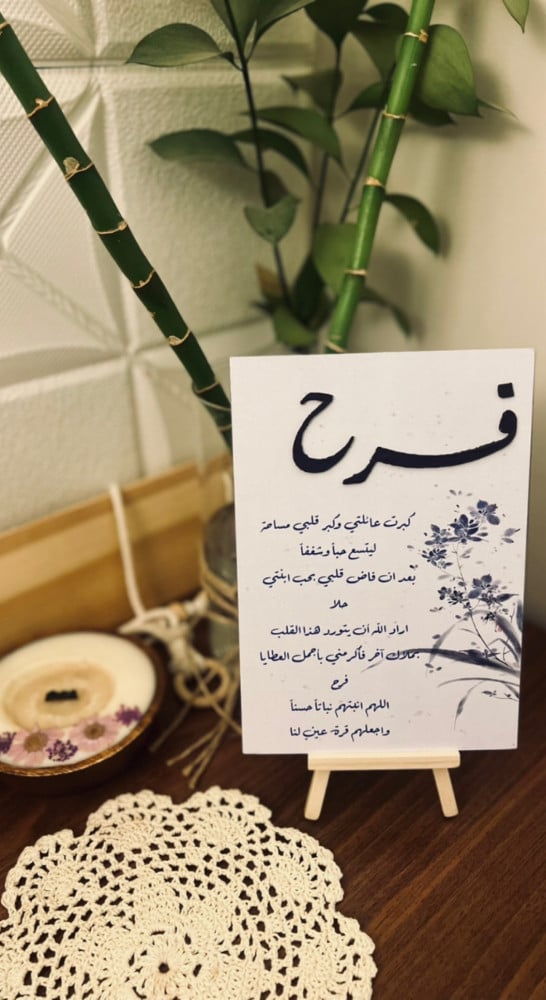 فرح
كبرت عائلتي وكبر قلبي مساحة
ليتسع حباً وشغفاً
بعد ان فاض قلبي بحب ابنتي
حلا
اراد الله أن يتورد هذا القلب
بملاك آخر فأكرمني باجمل العطايا
فرح
اللهم انبتهم نباتاً حسناً
واجعلهم قرة عين لنا